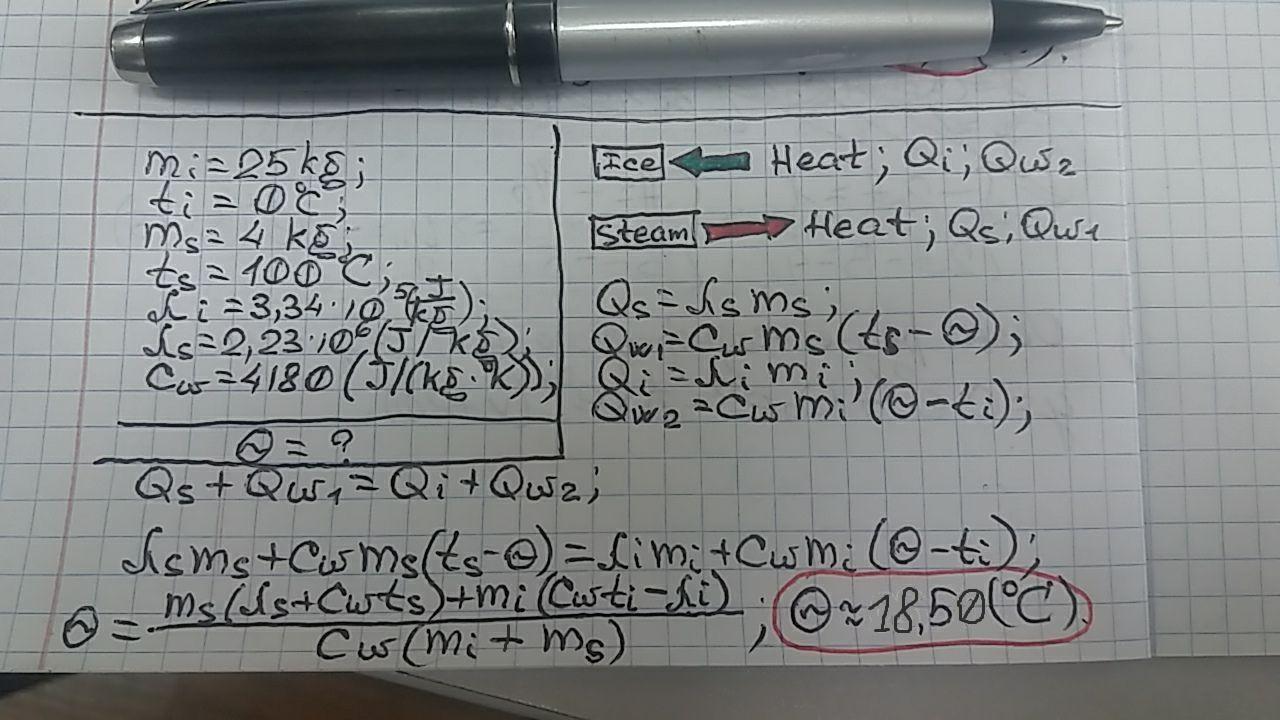 ).
mi = 25 kg;
ti = 0°C;
ms = 4 kg;
ts = 100°C;
λi = 3,34·10⁵(J/kg);
λs = 2,23·10⁶(J/kg);
Cw = 4180(J/(kg·°K));
Θ = ?
Ice ← Heat; Qi; Qw2
Steam → Heat; Qs; Qw1
Qs = λs ms;
Qw1 = Cw ms (ts - Θ);
Qi = λi mi;
Qw2 = Cw mi (Θ - ti);
Qs + Qw1 = Qi + Qw2;
λs ms + Cw ms (ts - Θ) = λi mi + Cw mi (Θ - ti);
Θ = (ms(λs + Cw ts) + mi(Cw ti - λi)) / (Cw(mi + ms)); Θ ≈ 18,50(°C).